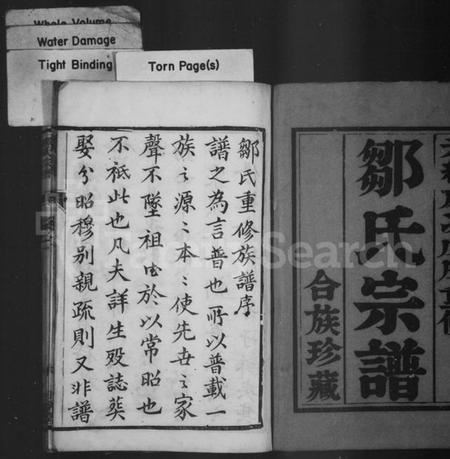 Whole Volume
Water Damage
Tight Binding
Torn Page(s)
鄒氏宗譜
合族珍藏
鄒氏重修族譜序
譜之為言普也所以普載一
族之源〻本〻使先世之家
聲不墜祖德於以常昭也
不祗此也凡夫詳生歿誌葬
娶分昭穆別親疏則又非譜